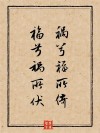 禍兮福所倚
福兮禍所伏